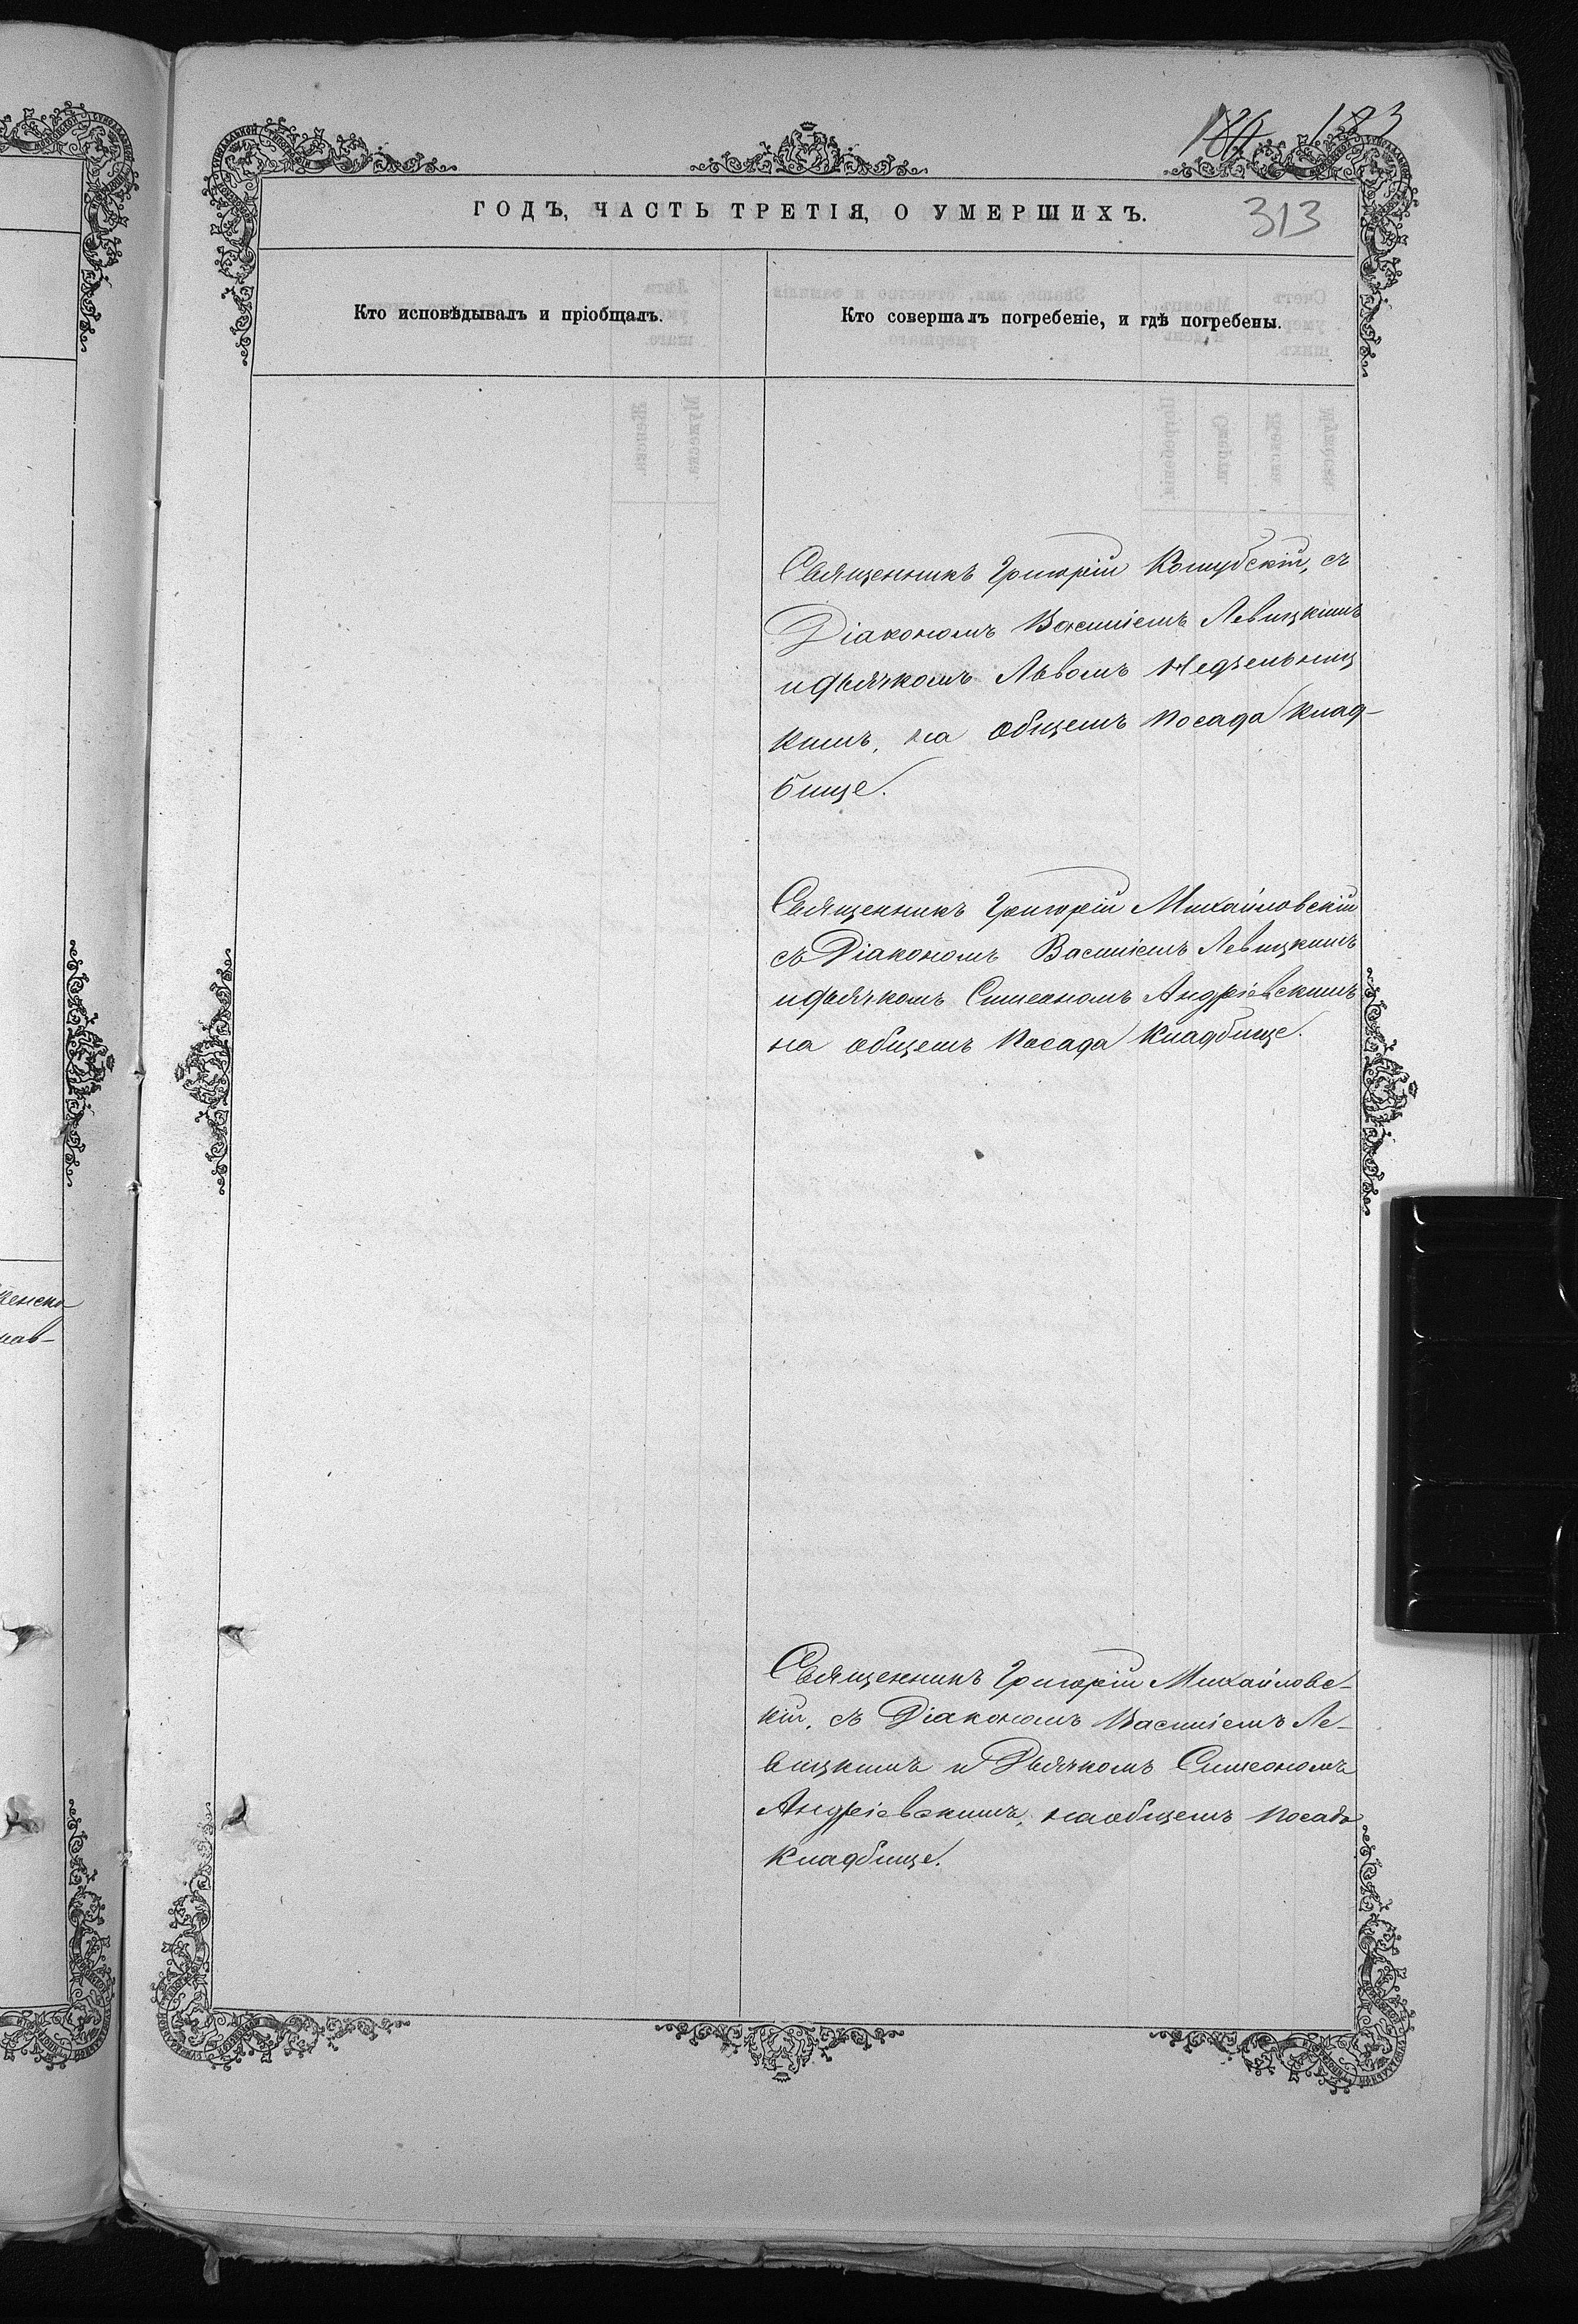 183
313
ГОДЪ, ЧАСТЬ ТРЕТІЯ, О УМЕРШИХЪ.
Кто исповѣдывалъ и пріобщалъ.
Кто совершалъ погребеніе, и гдѣ погребены.
Священникъ Григорій Кошубскій, съ
Діакономъ Василіемъ Левицкимъ
и дьячкомъ Львомъ Недзельниц
кимъ, на общемъ посада клад-
бище.
Священникъ Григорій Михайловскій
съ Діакономъ Василіемъ Левицкимъ
и дьячкомъ Симеономъ Андріевскимъ
на общемъ посада кладбище.
Священникъ Григорій Михайловс-
кій, съ Діакономъ Василіемъ Ле-
вицкимъ и Дьячкомъ Симеономъ
Андріевскимъ, на общемъ посада
кладбище.